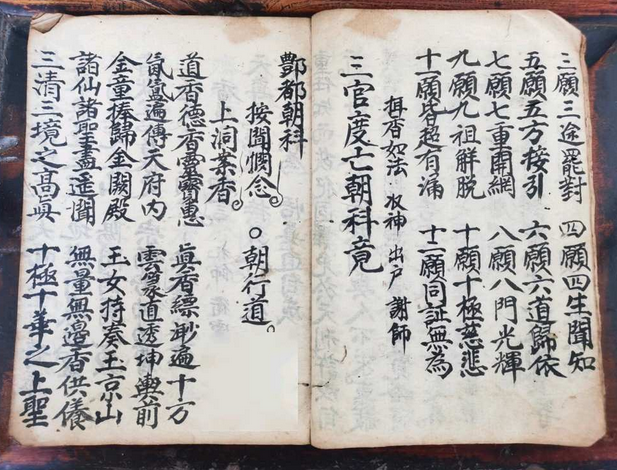 三願三途罷對　四願四生聞知
五願五方接引　六願六道歸依
七願七重開網　八願八門光輝
九願九祖觧脱　十願十極慈悲
十一願皆超有漏　十二願同証無為
拜香如法 收神 出户 謝師
三官度亡朝科竟
酆都朝科
按聞憫念。○朝行道。
上洞案香。
道香德香靈寳惠　眞香縹渺遍十方
氤氲遍傳天府內　雲篆道透坤輿前
金童捧歸金闕殿　玉女持奏玉京山
諸仙諸聖盡遥聞　無量無邊香供養
三清三境之髙眞　十極十華之上聖